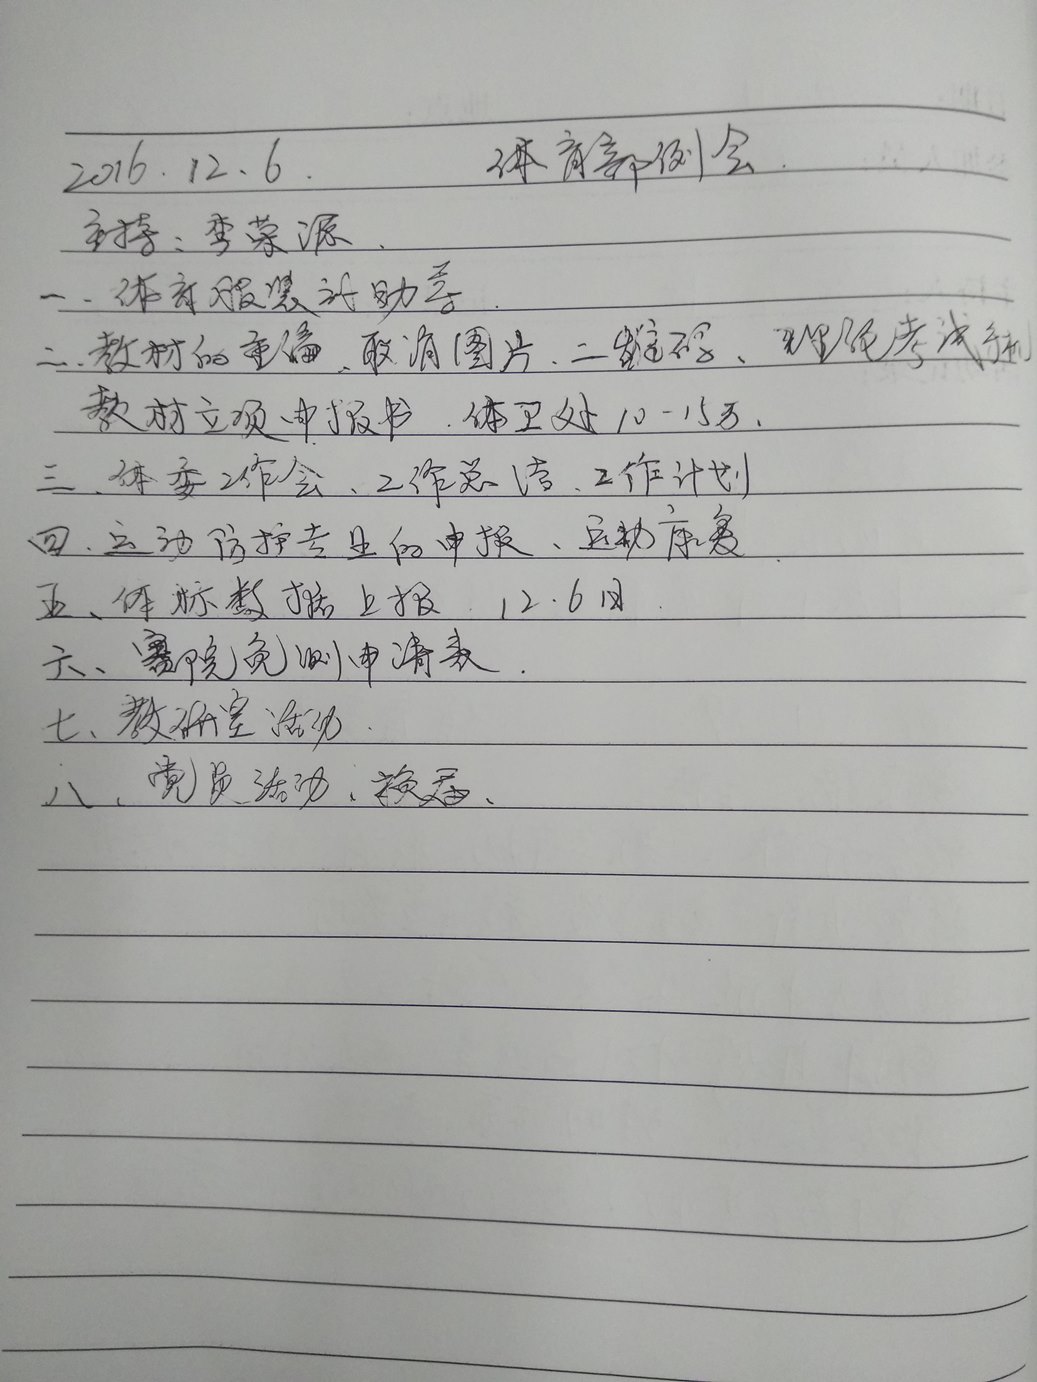 2016.12.6. 体育部例会.
主持：李荣源.
一、体育服装
二、教材的重编、取消图片、二维码、理论考试手机
教材立项申报书. 体卫处10-15万.
三、体委工作会、工作总结、工作计划
四、运动防护专业的申报、运动康复.
五、体标数据上报. 12.6日.
六、院免测申请表.
七、教研室活动.
八、党员活动、换届、